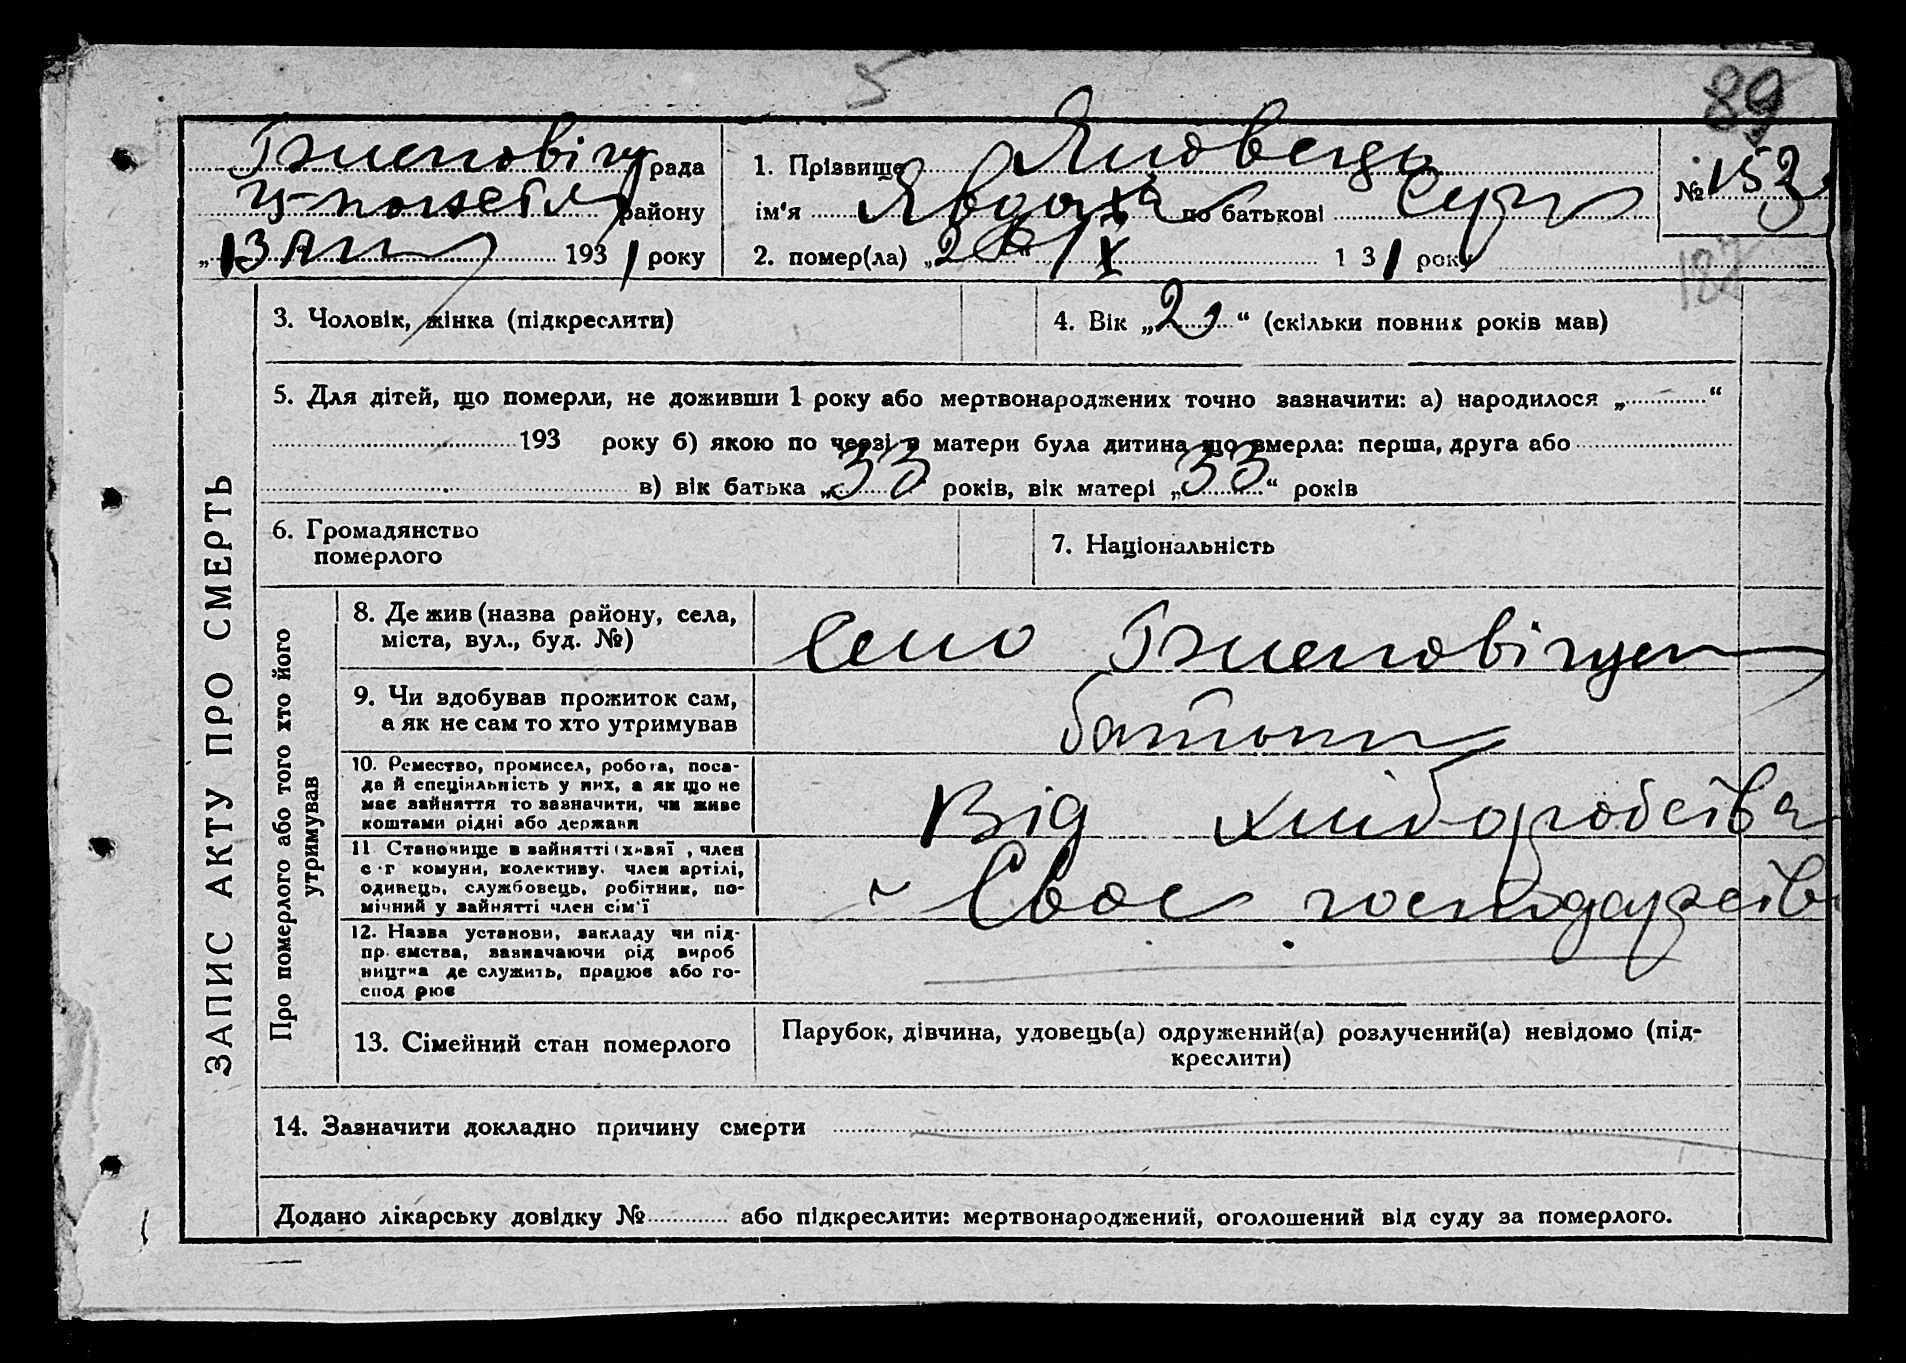 5
89
рада
1. Прізвище Яловець
№ 153
району
ім'я Явдоха по батькові Серг
„13 193 1 року
2. помер(ла) „2 /X 1 3 1 року
187
3. Чоловік, жінка (підкреслити)
4. Вік „2 “ (скільки повних років мав)
5. Для дітей, що померли, не доживши 1 року або мертвонароджених точно зазначити: а) народилося „ “
193 року б) якою по черзі в матери була дитина що вмерла: перша, друга або
в) вік батька „33 років, вік матері „33“ років
6. Громадянство
померлого
7. Національність
ЗАПИС АКТУ ПРО СМЕРТЬ
Про померлого або того хто його
утримував
8. Де жив (назва району, села,
міста, вул., буд. №)
Село
9. Чи здобував прожиток сам,
а як не сам то хто утримував
батьки
10. Ремество, промисел, робота, поса-
да й спеціяльність у них, а як що не
має зайняття то зазначити, чи живе
коштами рідні або держави
Від хліборобства
11 Становище в зайнятті (хазяї , член
с-г комуни, колективу, член артілі,
одинець, службовець, робітник, по-
мічний у зайнятті член сім'ї
Своє господарств
12. Назва установи, закладу чи під-
пр. ємства, зазначаючи рід вироб
ництва де служить, працює або го-
спод рює
13. Сімейний стан померлого
Парубок, дівчина, удовець(а) одружений(а) розлучений(а) невідомо (під-
креслити)
14. Зазначити докладно причину смерти
Додано лікарську довідку № або підкреслити: мертвонароджений, оголошений від суду за померлого.